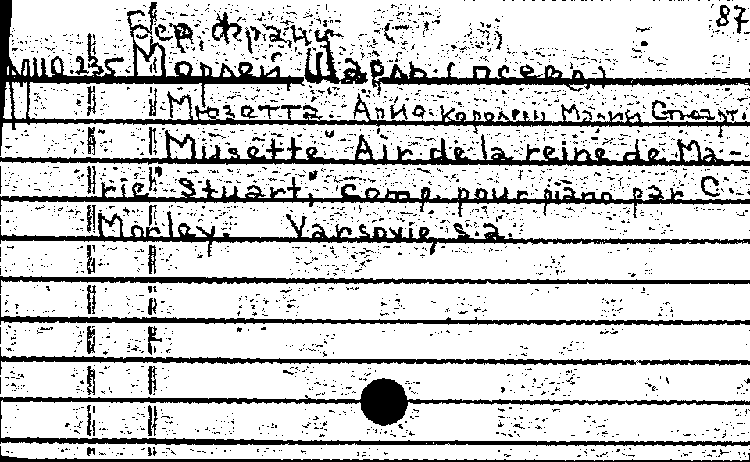 87
Бер, Франц
М110.235 Морлей, Шарль (псевд.)
Мюзетта. Ария королевы Марии Стюарт.
"Musette" Air de la reine de Ma-
rie "Stuart," comp. pour piano par C.
Morley. Varsovie, s.a.